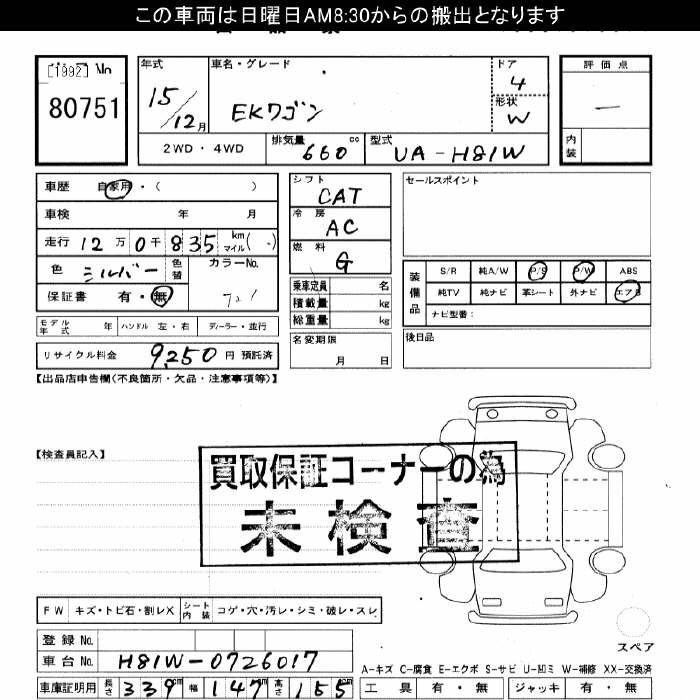 この車両は日曜日AM8:30からの搬出となります
[1992] No
80751
年式 車名・グレード ドア 評価点
15/12月 EKワゴン 4 —
形状 W
2WD・4WD 排気量 660 cc 型式 UA-H81W 内装
車歴 自家用・( )
車検 年 月
走行 12万0千835 km マイル( )
色 シルバー 色替 カラーNo.
保証書 有・無
モデル年式 年 ハンドル 左・右 ディーラー・並行
リサイクル料金 9,250 円 預託済
シフト CAT
冷房 AC
燃料 G
乗車定員 名
積載量 kg
総重量 kg
名変期限
月 日
セールスポイント
装備品 S/R 純A/W P/S P/W ABS
純TV 純ナビ 革シート 外ナビ エアB
ナビ型番:
後日品
【出品店申告欄(不良箇所・欠品・注意事項等)】
【検査員記入】
買取保証コーナーの為
未検査
FW キズ・トビ石・割レX シート内装 コゲ・穴・汚レ・シミ・破レ・スレ
登録No.
車台No. H81W-0726017
車庫証明用 長さ 339cm 幅 147cm 高さ 155cm
スペア
A-キズ C-腐食 E-エクボ S-サビ U-凹ミ W-補修 XX-交換済
工具 有・無 ジャッキ 有・無